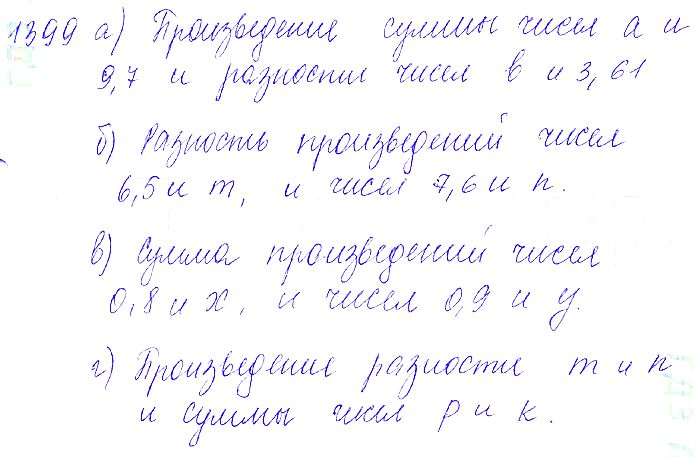 1399 а) Произведение суммы чисел а и
9,7 и разности чисел в и 3,61
б) Разность произведений чисел
6,5 и m, и чисел 7,6 и n.
в) Сумма произведений чисел
0,8 и x, и чисел 0,9 и y.
г) Произведение разности m и n
и суммы чисел p и k.